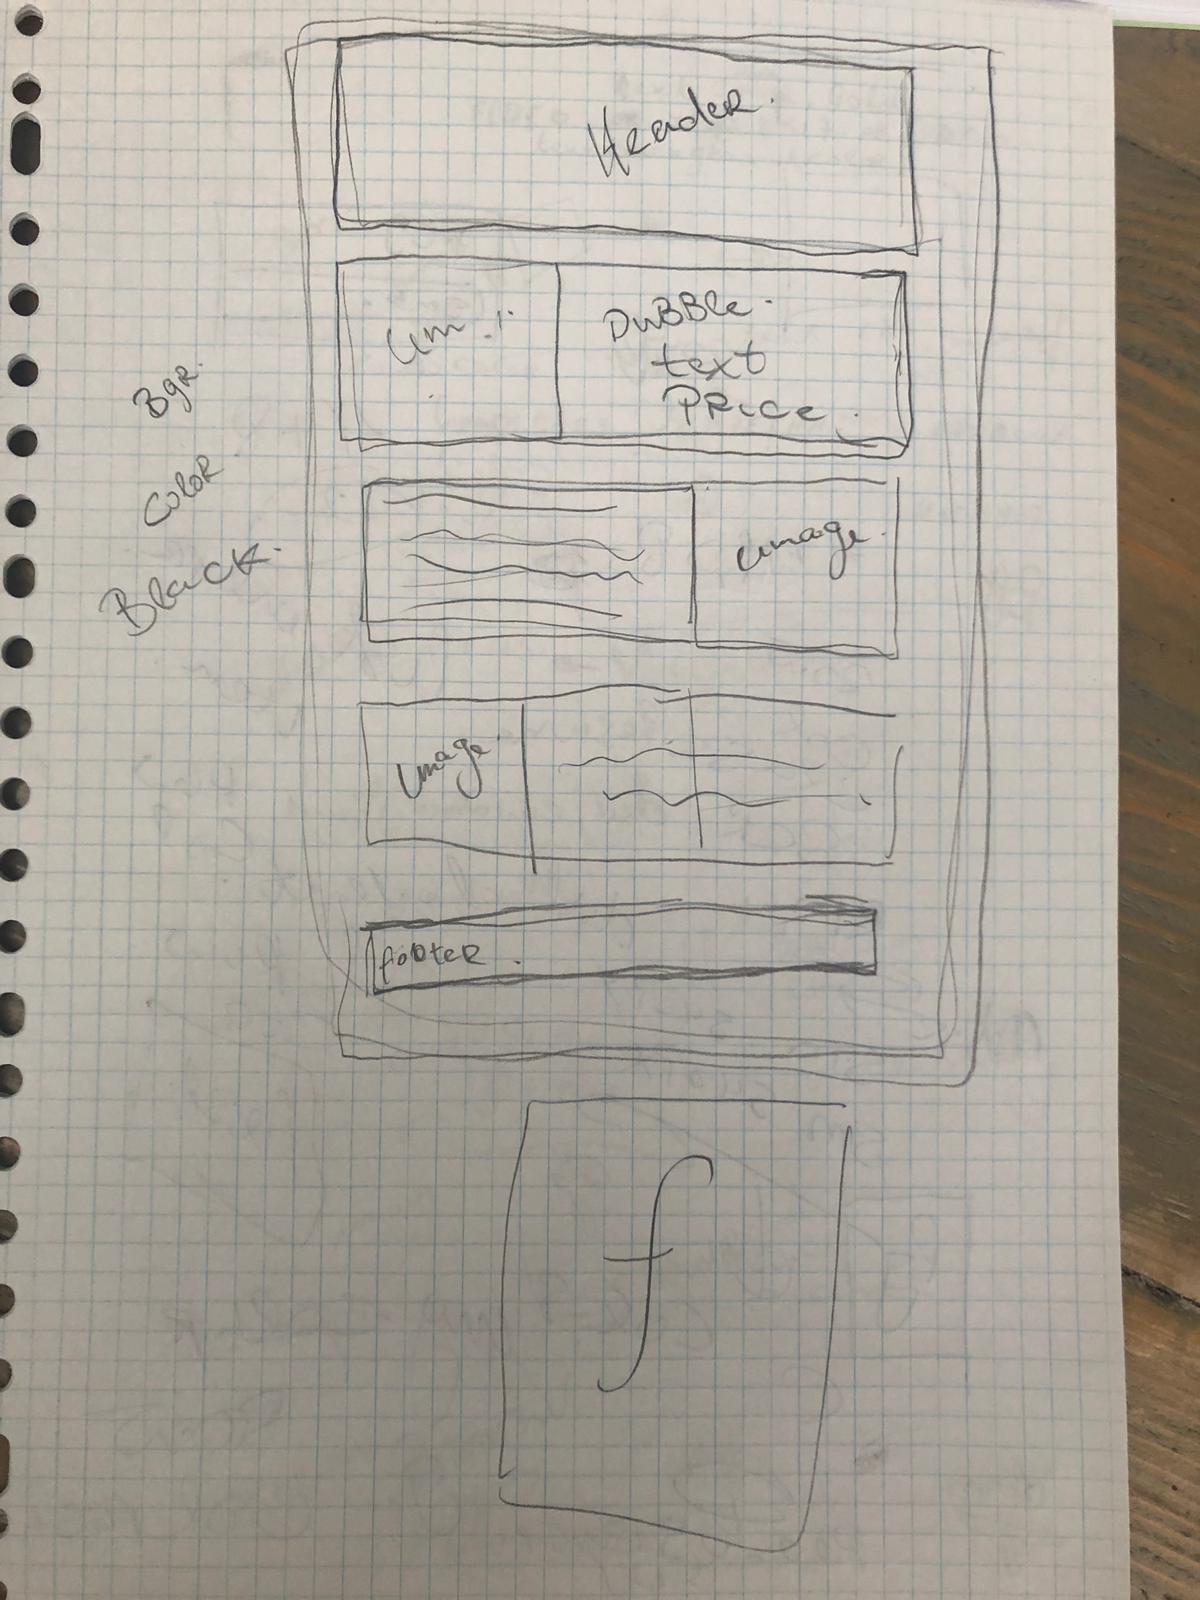 Header.
Im.
DuBBle.
text
PRice.
Bgr.
Color.
Black.
image.
image.
footer.
f